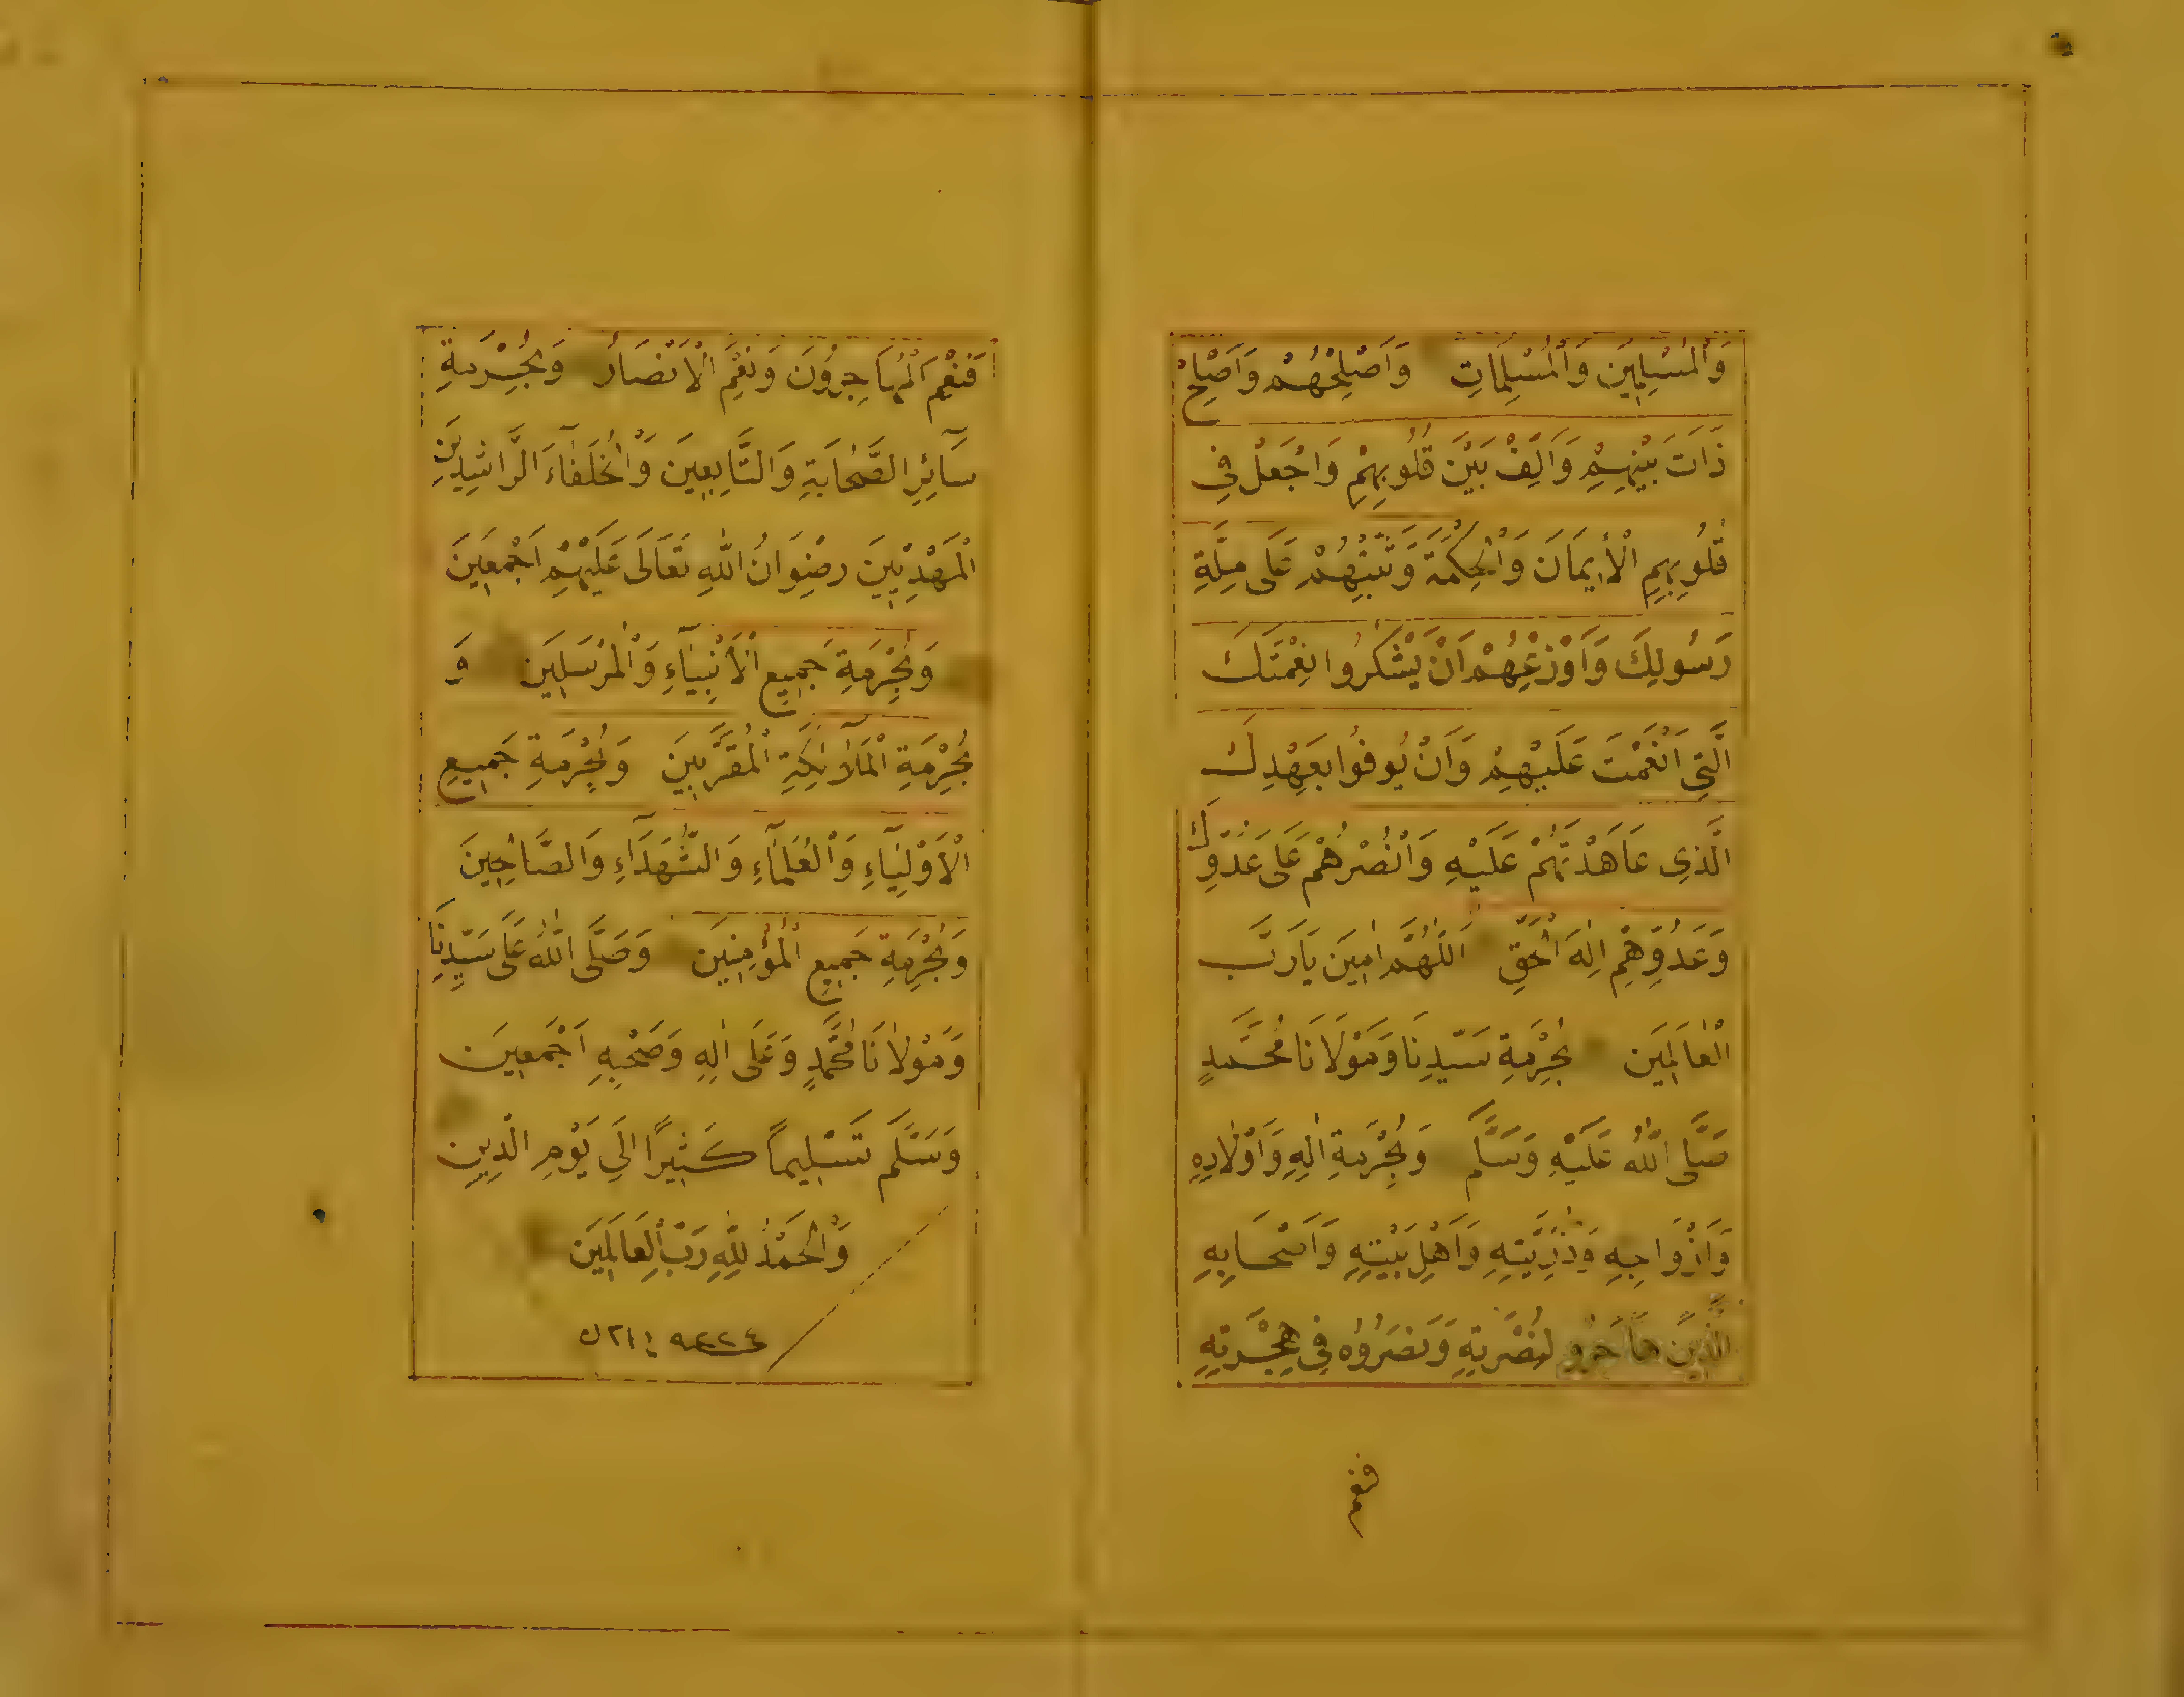 وَالْمُسْلِمِينَ وَالْمُسْلِمَاتِ وَاَصْلِحْهُمْ وَاَصْلِحْ
ذَاتَ بَيْنِهِمْ وَاَلِّفْ بَيْنَ قُلُوبِهِمْ وَاجْعَلْ فِي
قُلُوبِهِمِ الْأِيمَانَ وَالْحِكْمَةَ وَثَبِّتْهُمْ عَلَى مِلَّةِ
رَسُولِكَ وَاَوْزِعْهُمْ اَنْ يَشْكُرُوا نِعْمَتَكَ
الَّتِي اَنْعَمْتَ عَلَيْهِمْ وَاَنْ يُوفُوا بِعَهْدِكَ
الَّذِي عَاهَدْتَهُمْ عَلَيْهِ وَانْصُرْهُمْ عَلَى عَدُوِّكَ
وَعَدُوِّهِمْ اِلٰهَ الْحَقِّ اَللّٰهُمَّ اٰمِينَ يَا رَبَّ
الْعَالَمِينَ بِحُرْمَةِ سَيِّدِنَا وَمَوْلَانَا مُحَمَّدٍ
صَلَّى اللّٰهُ عَلَيْهِ وَسَلَّمَ وَبِحُرْمَةِ اٰلِهِ وَاَوْلَادِهِ
وَاَزْوَاجِهِ وَذُرِّيَّتِهِ وَاَهْلِ بَيْتِهِ وَاَصْحَابِهِ
الَّذِينَ هَاجَرُو لِنُصْرَتِهِ وَنَصَرُوُه فِي هِجْرَتِهِ
فنعم
فَنِعْمَ الْمُهَاجِرُونَ وَنِعْمَ الْاَنْصَارُ وَبِحُرْمَةِ
سَآئِرِ الصَّحَابَةِ وَالتَّابِعِينَ وَالْخُلَفَآءِ الرَّاشِدِينَ
الْمَهْدِيِّينَ رِضْوَانُ اللّٰهِ تَعَالَى عَلَيْهِمْ اَجْمَعِينَ
وَبِحُرْمَةِ جَمِيعِ الْأَنْبِيَآءِ وَالْمُرْسَلِينَ وَ
بِحُرْمَةِ الْمَلَآئِكَةِ الْمُقَرَّبِينَ وَبِحُرْمَةِ جَمِيعِ
الْاَوْلِيَآءِ وَالْعُلَمَآءِ وَالشُّهَدَآءِ وَالصَّالِحِينَ
وَبِحُرْمَةِ جَمِيعِ الْمُؤْمِنِينَ وَصَلَّى اللّٰهُ عَلَى سَيِّدِنَا
وَمَوْلَانَا مُحَمَّدٍ وَعَلَى اٰلِهِ وَصَحْبِهِ اَجْمَعِينَ
وَسَلَّمَ تَسْلِيماً كَثِيرًا اِلَي يَوْمِ الدِّينِ
وَالْحَمْدُ لِلّٰهِ رَبِّ الْعَالَمِينَ